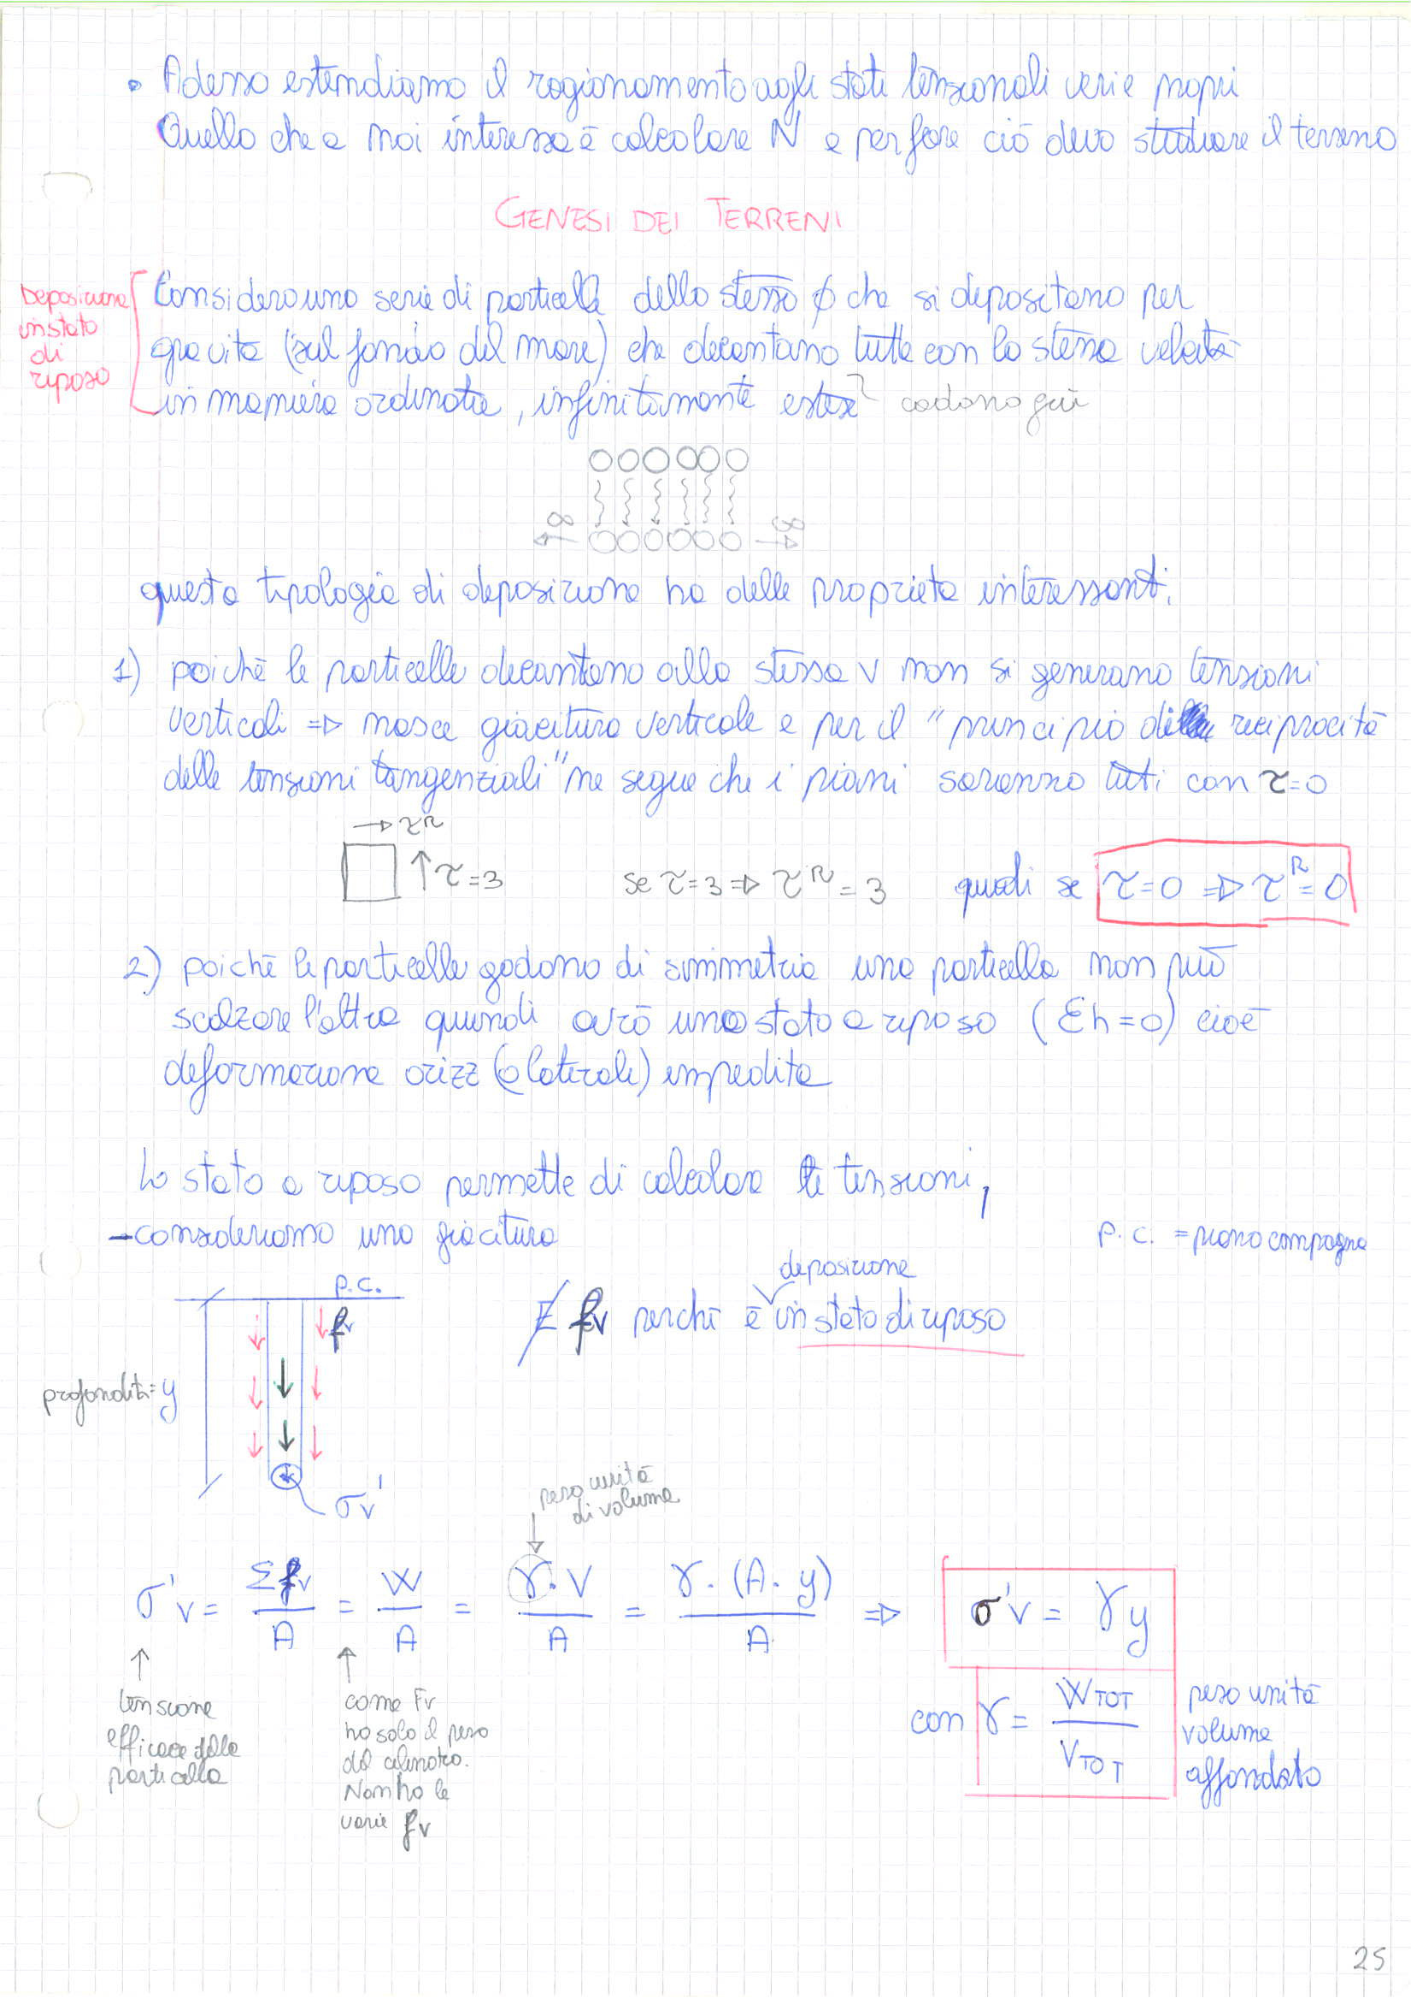 • Adesso estendiamo il ragionamento agli stati tensionali veri e propri
Quello che a noi interessa è calcolare N e per fare ciò devo studiare il terreno
GENESI DEI TERRENI
Deposizione
in stato
di
riposo
Considero una serie di particelle dello stesso ϕ che si depositano per
gravità (sul fondo del mare) che decantano tutte con la stessa velocità
in maniera ordinata, infinitamente estese
cadono giù
∞ ∞
questa tipologia di deposizione ha delle proprietà interessanti:
1) poiché le particelle decantano alla stessa v non si generano tensioni
verticali ⇒ nasce giacitura verticale e per il "principio di reciprocità
delle tensioni tangenziali" ne segue che i piani saranno tutti con τ=0
→ τᴿ
↑ τ=3
se τ=3 ⇒ τᴿ = 3
quindi se τ=0 ⇒ τᴿ = 0
2) poiché le particelle godono di simmetria una particella non può
scalzare l'altra quindi avrò uno stato a riposo (Ɛh=0) cioè
deformazione orizz (o laterale) impedita
Lo stato a riposo permette di calcolare le tensioni,
- consideriamo una giacitura
P.C. = piano campagna
P.C.
fv
profondità = y
σv'
deposizione
∄ fv perché è in stato di riposo
peso unità
di volume
σ'v = Σfv/A = W/A = γ·V/A = γ·(A·y)/A ⇒ σ'v = γy
↑ tensione
efficace della
particella
↑ come Fv
ho solo il peso
del cilindro.
Non ho le
varie fv
con γ = WTOT/VTOT
peso unità
volume
affondato
25